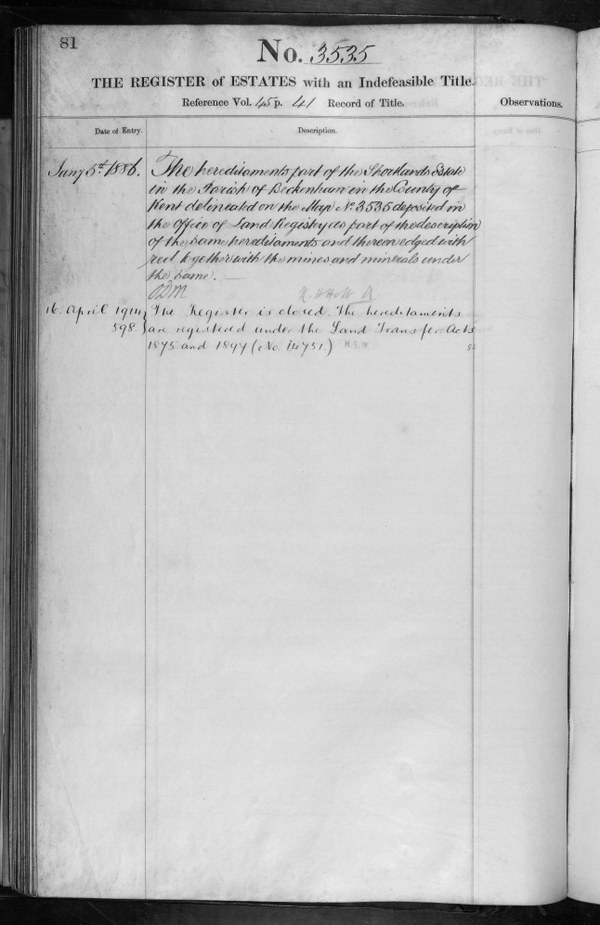 81
No. 3535
THE REGISTER of ESTATES with an Indefeasible Title.
Reference Vol. 45 p. 41 Record of Title.
Observations.
Date of Entry.
Description.
Jany 5th 1886.
The hereditaments part of the Shortlands Estate
in the Parish of Beckenham in the County of
Kent delineated on the Map No. 3535 deposited in
the Office of Land Registry as part of the description
of the same hereditaments and thereon edged with
red together with the mines and minerals under
the same.
16. April 1914
598.
The Register is closed. The hereditaments
are registered under the Land Transfer Acts
1875 and 1897 (No. 14751.)